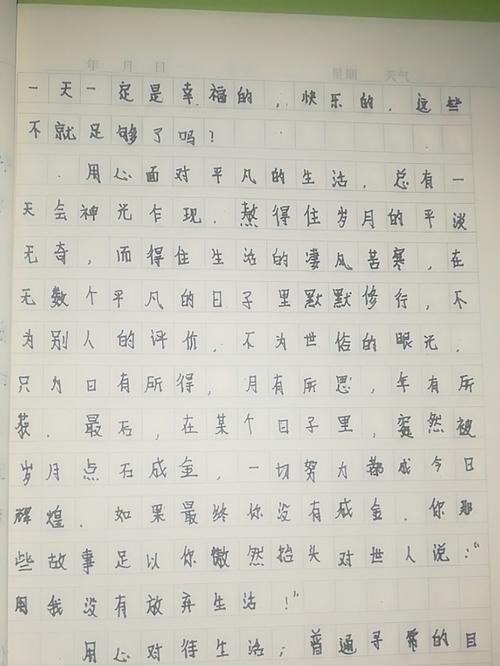 年 月 日 星期 天气
一天一定是幸福的，快乐的，这些
不就足够了吗？
用心面对平凡的生活，总有一
天会神光乍现．熬得住岁月的平淡
无奇，而得住生活的凄风苦寒，在
无数个平凡的日子里默默修行，不
为别人的评价，不为世俗的眼光．
只为日有所得，月有所思，年有所
获．最后，在某个日子里，突然被
岁月点石成金，一切努力都成今日
辉煌．如果最终你没有成金．你那
些故事足以你傲然抬头对世人说："
用我没有放弃生活！"
用心对待生活；普通寻常的日